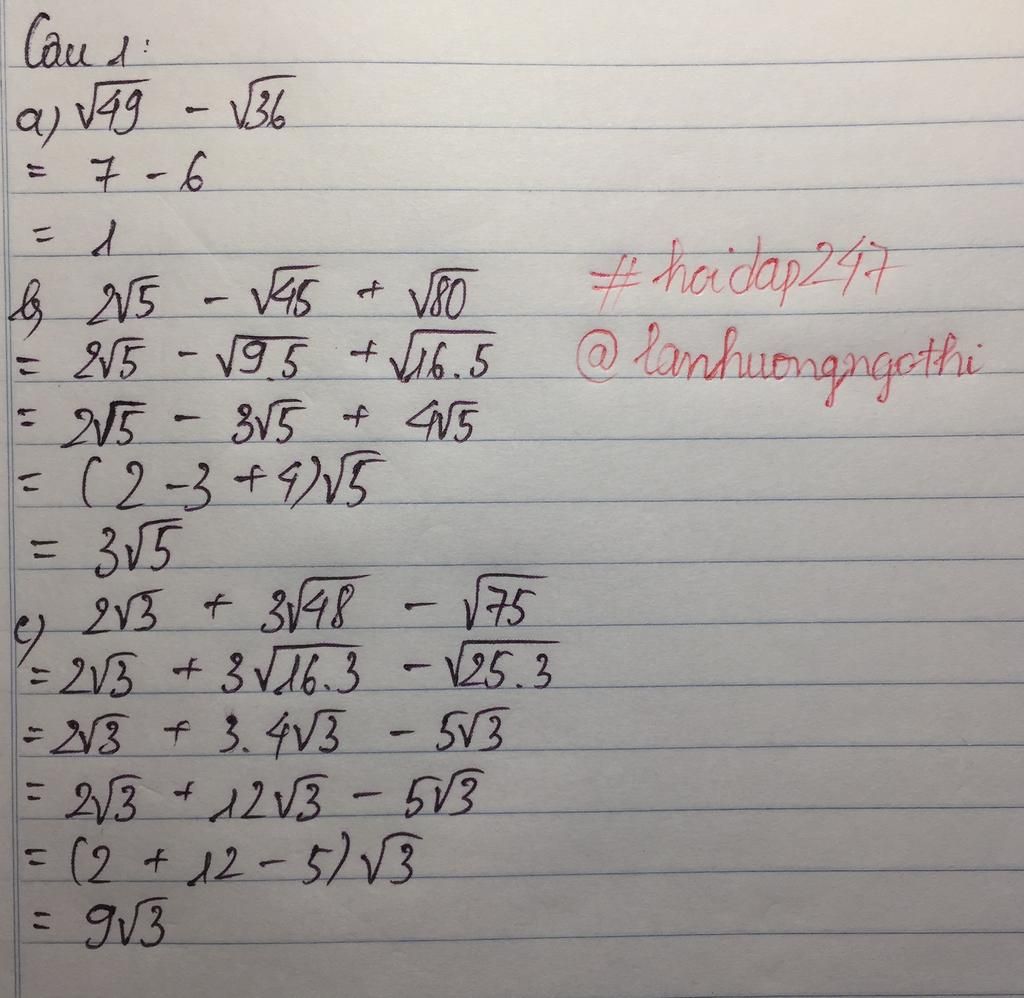 Câu 1:
a) √49 - √36
= 7 - 6
= 1
b) 2√5 - √45 + √80
= 2√5 - √9.5 + √16.5
= 2√5 - 3√5 + 4√5
= (2 - 3 + 4)√5
= 3√5
c) 2√3 + 3√48 - √75
= 2√3 + 3√16.3 - √25.3
= 2√3 + 3.4√3 - 5√3
= 2√3 + 12√3 - 5√3
= (2 + 12 - 5)√3
= 9√3
#hoidap247
@lanhuongngothi